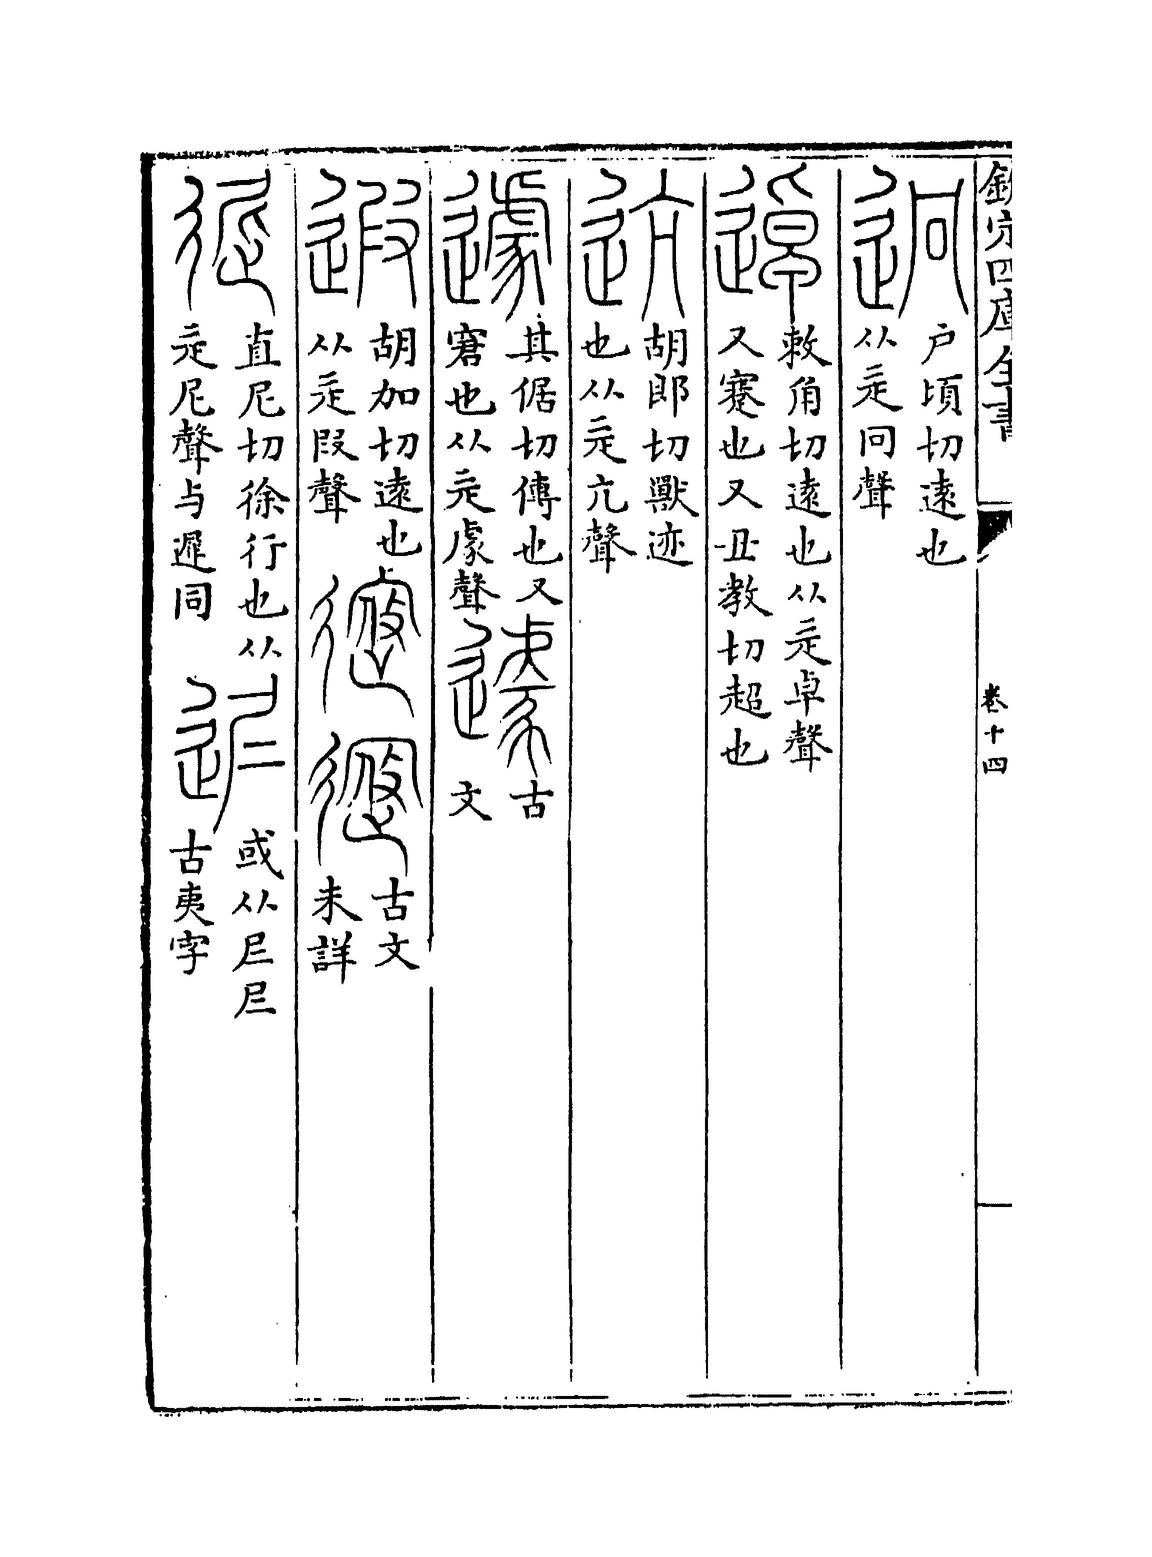 欽定四庫全書
卷十四
迥
户頃切遠也
从辵冋聲
逴
敕角切遠也从辵卓聲
又蹇也又丑教切超也
迒
胡郎切獸迹
也从辵亢聲
遽
其倨切傳也又
窘也从辵豦聲
古
文
遐
胡加切遠也
从辵叚聲
古文
未詳
直尼切徐行也从
辵尼聲与遲同
或从𡰥𡰥
古夷字